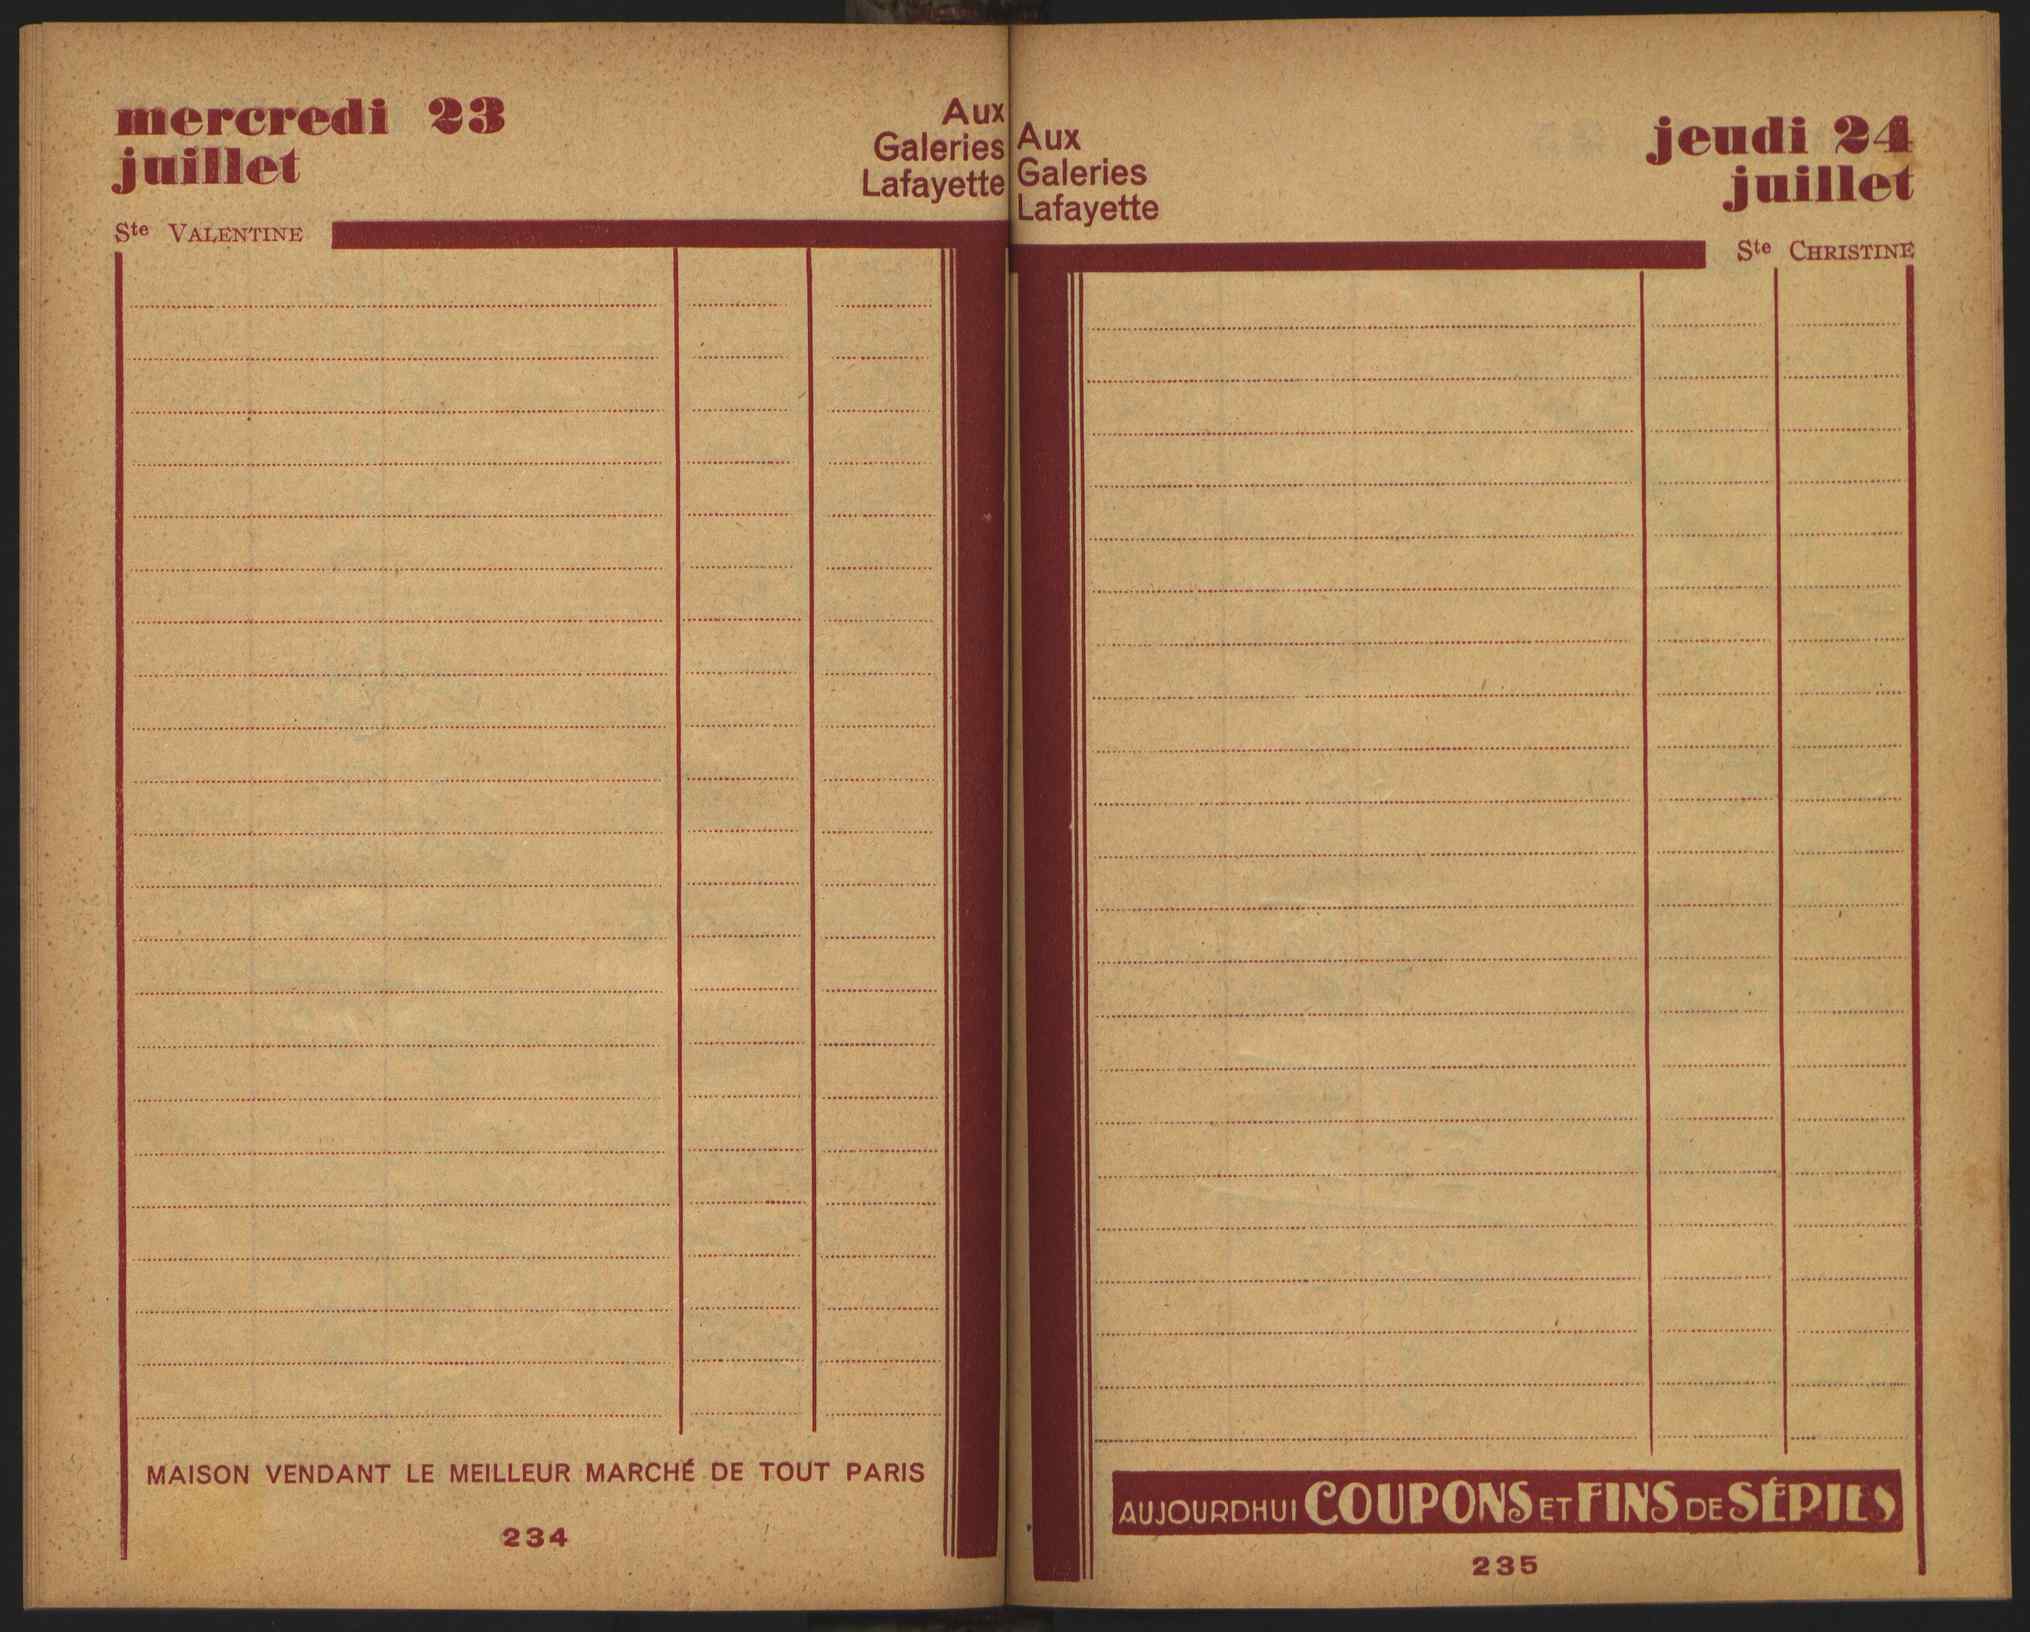 mercredi 23
juillet
Aux
Galeries
Lafayette
Ste VALENTINE
MAISON VENDANT LE MEILLEUR MARCHÉ DE TOUT PARIS
234
Aux
Galeries
Lafayette
jeudi 24
juillet
Ste CHRISTINE
AUJOURDHUI COUPONS ET FINS DE SÉRIES
235